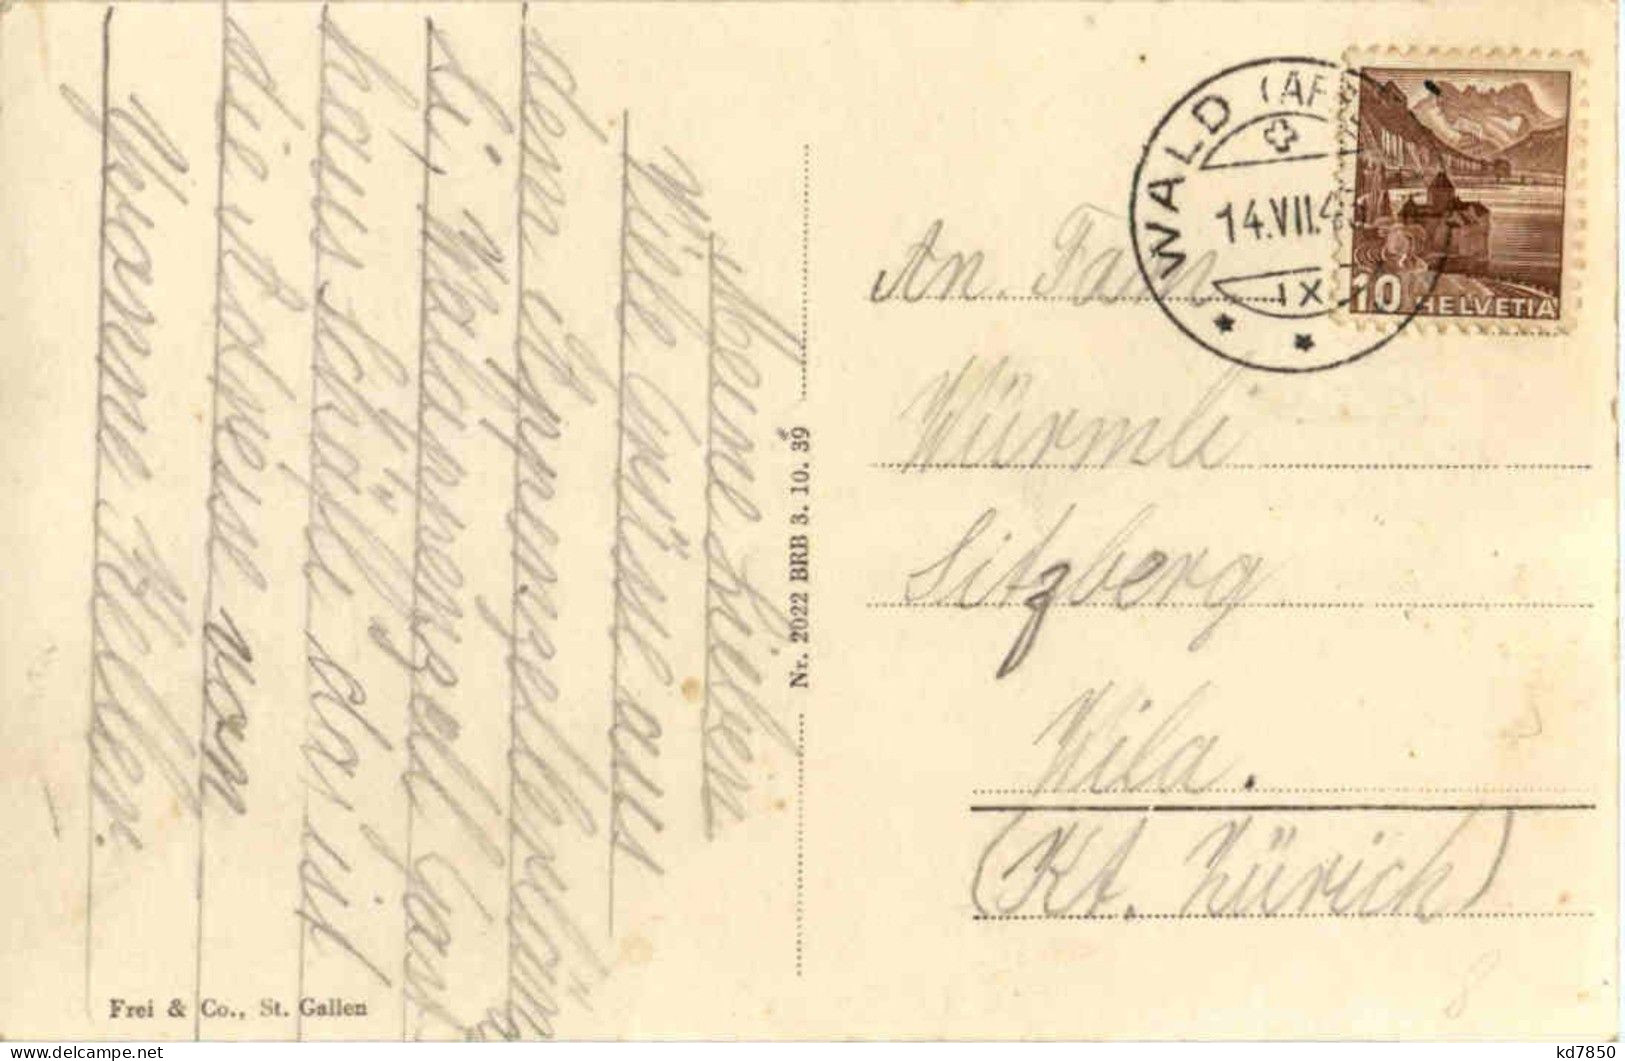 Meine Lieben
Viele Grüsse aus
dem Appenzellerlan
haus
die Adresse von
Yvonne Keller.
Nr. 2022 BRB 3. 10. 39
Frei & Co., St. Gallen
WALD (AP
14.VII.4
IX
10 HELVETIA
An. Fam
Würmli
Sitzberg
Wila.
(Kt. Zürich)
8
kd7850